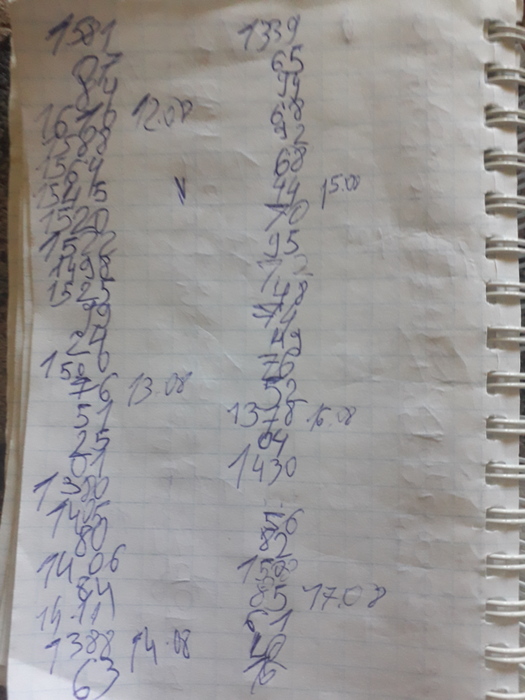 1581
84
1616 12.08
1588
1564
1545
1520
1522
1498
1525
99
24
1506
76 13.08
51
25
01
1380
1405
80
1406
84
1411
1388 14.08
63
1339
65
94
68
92
68
44 15.08
70
95
72
48
74
49
76
52
1378 16.08
04
1430
56
82
1500
85 17.08
51
40
16